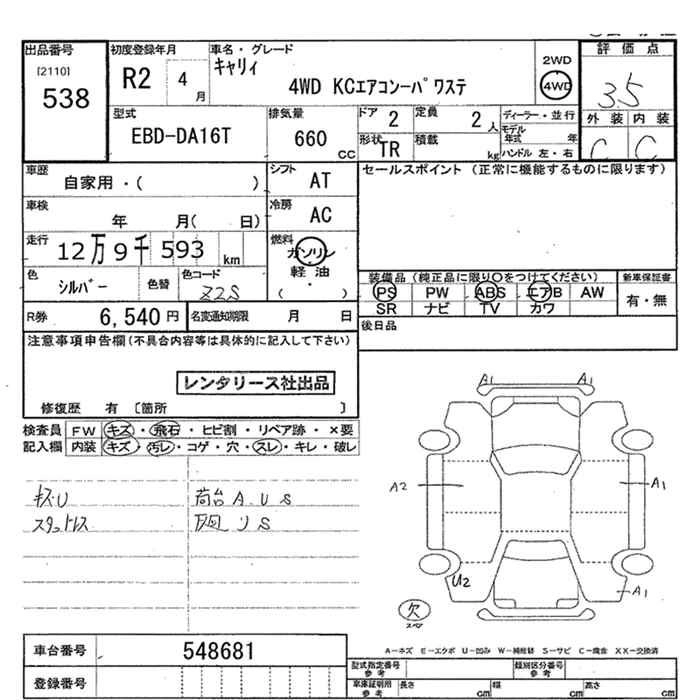 出品番号 初度登録年月 車名・グレード 2WD 評価点
[2110] 538 R2 4月 キャリイ 4WD KCエアコン-パワステ 4WD 3.5
型式 排気量 ドア 2 定員 2人 ディーラー・並行 外装 内装
EBD-DA16T 660 CC 形状 TR 積載 kg モデル年式 年 C C
ハンドル 左・右
車歴 シフト セールスポイント (正常に機能するものに限ります)
自家用・( ) AT
車検 冷房
年 月( 日) AC
走行 燃料
12万9千593 km ガソリン
軽油
・
( )
色 色替 色コード 装備品 (純正品に限り○をつけてください) 新車保証書
シルバー Z2S PS PW ABS エアB AW 有・無
SR ナビ TV カワ
R券 6,540円 名変通知期限 月 日 後日品
注意事項申告欄(不具合内容等は具体的に記入して下さい)
レンタリース社出品
修復歴 有 〔箇所 〕
検査員 FW キズ・飛石・ヒビ割・リペア跡・×要
記入欄 内装 キズ・汚レ・コゲ・穴・スレ・キレ・破レ
A1 A1
A2 A1
キズU 荷台A.U S
スタットレス 下回りS
U2 A1
欠
スペア
A-キズ E-エクボ U-凹み W-補修跡 S-サビ C-腐食 XX-交換済
車台番号 548681
型式指定番号 参考 類別区分番号 参考
登録番号 車庫証明用 参考 長さ cm 幅 cm 高さ cm